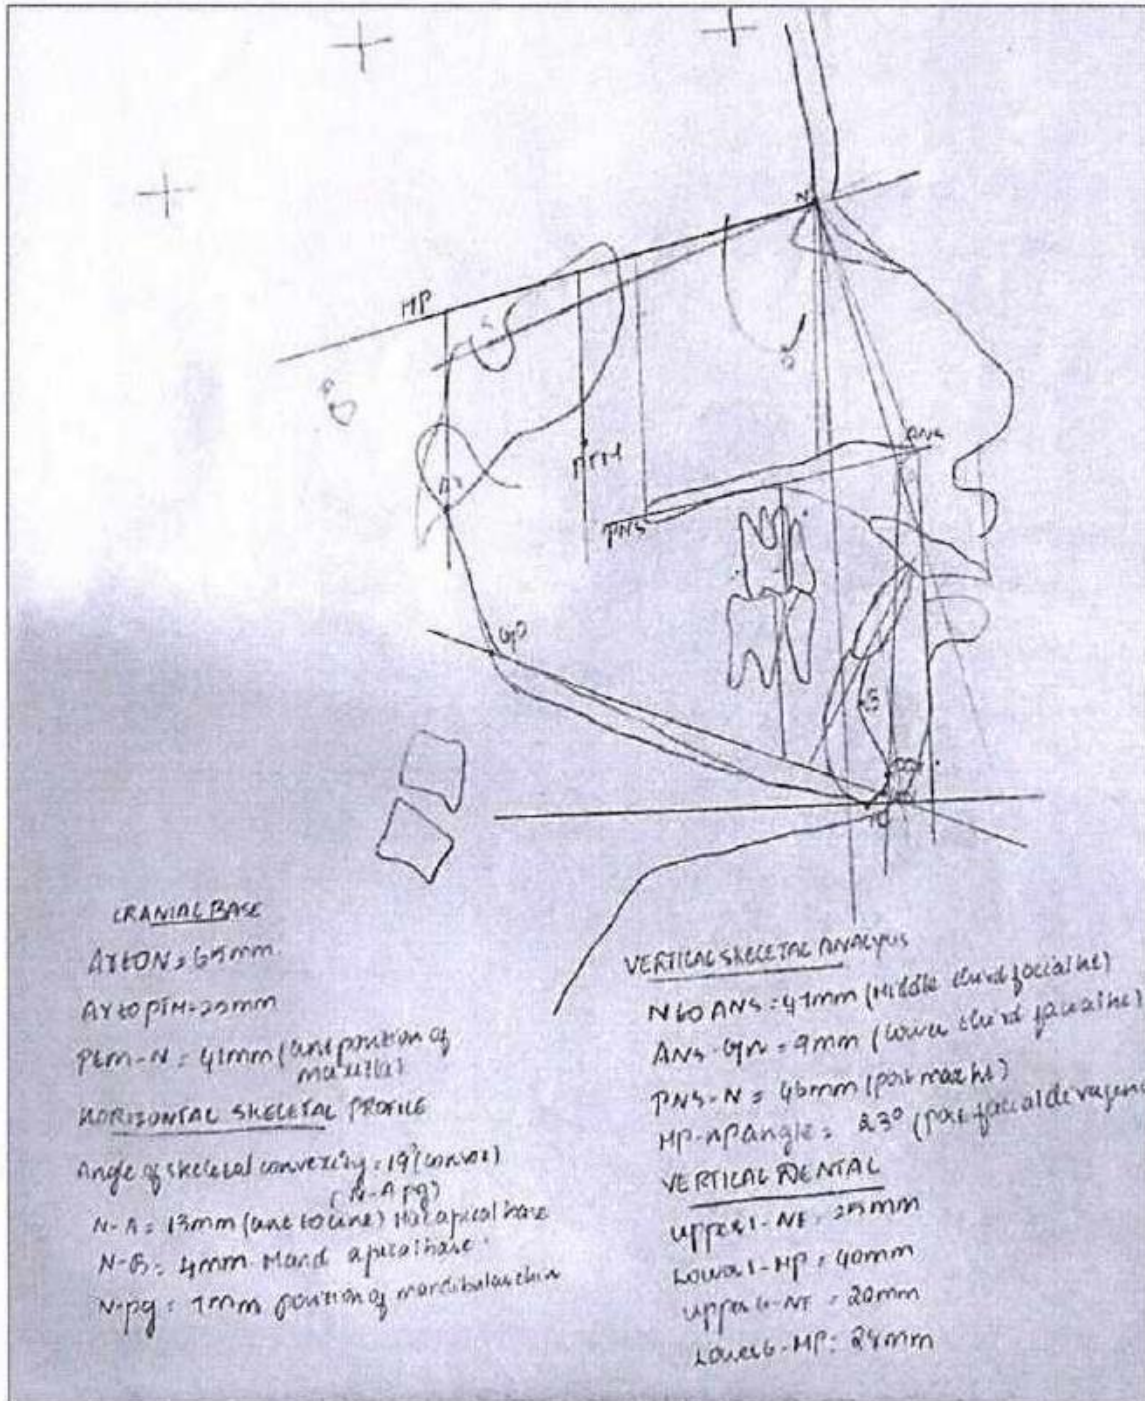 N
HP
S
O
P
PTM
Ar
ANS
PNS
GO
B
CRANIAL BASE
Ar to N = 65mm
Ar to PTM = 25mm
Ptm-N = 41mm (ant position of
maxilla)
HORIZONTAL SKELETAL PROFILE
Angle of skeletal convexity = 19° (convex)
(N-A pg)
N-A = 13mm (ant to line) Max apical base
N-B = 4mm Mand apical base
N-pg = 7mm position of mandibular chin
VERTICAL SKELETAL ANALYSIS
N to ANS = 47mm (Middle third facial ht)
ANS-Gn = 9mm (lower third facial ht)
PNS-N = 46mm (post max ht)
MP-HP Angle = 23° (post facial
VERTICAL DENTAL
upper 1-NF = 25mm
Lower 1-MP = 40mm
upper 6-NF = 20mm
Lower 6-MP = 28mm